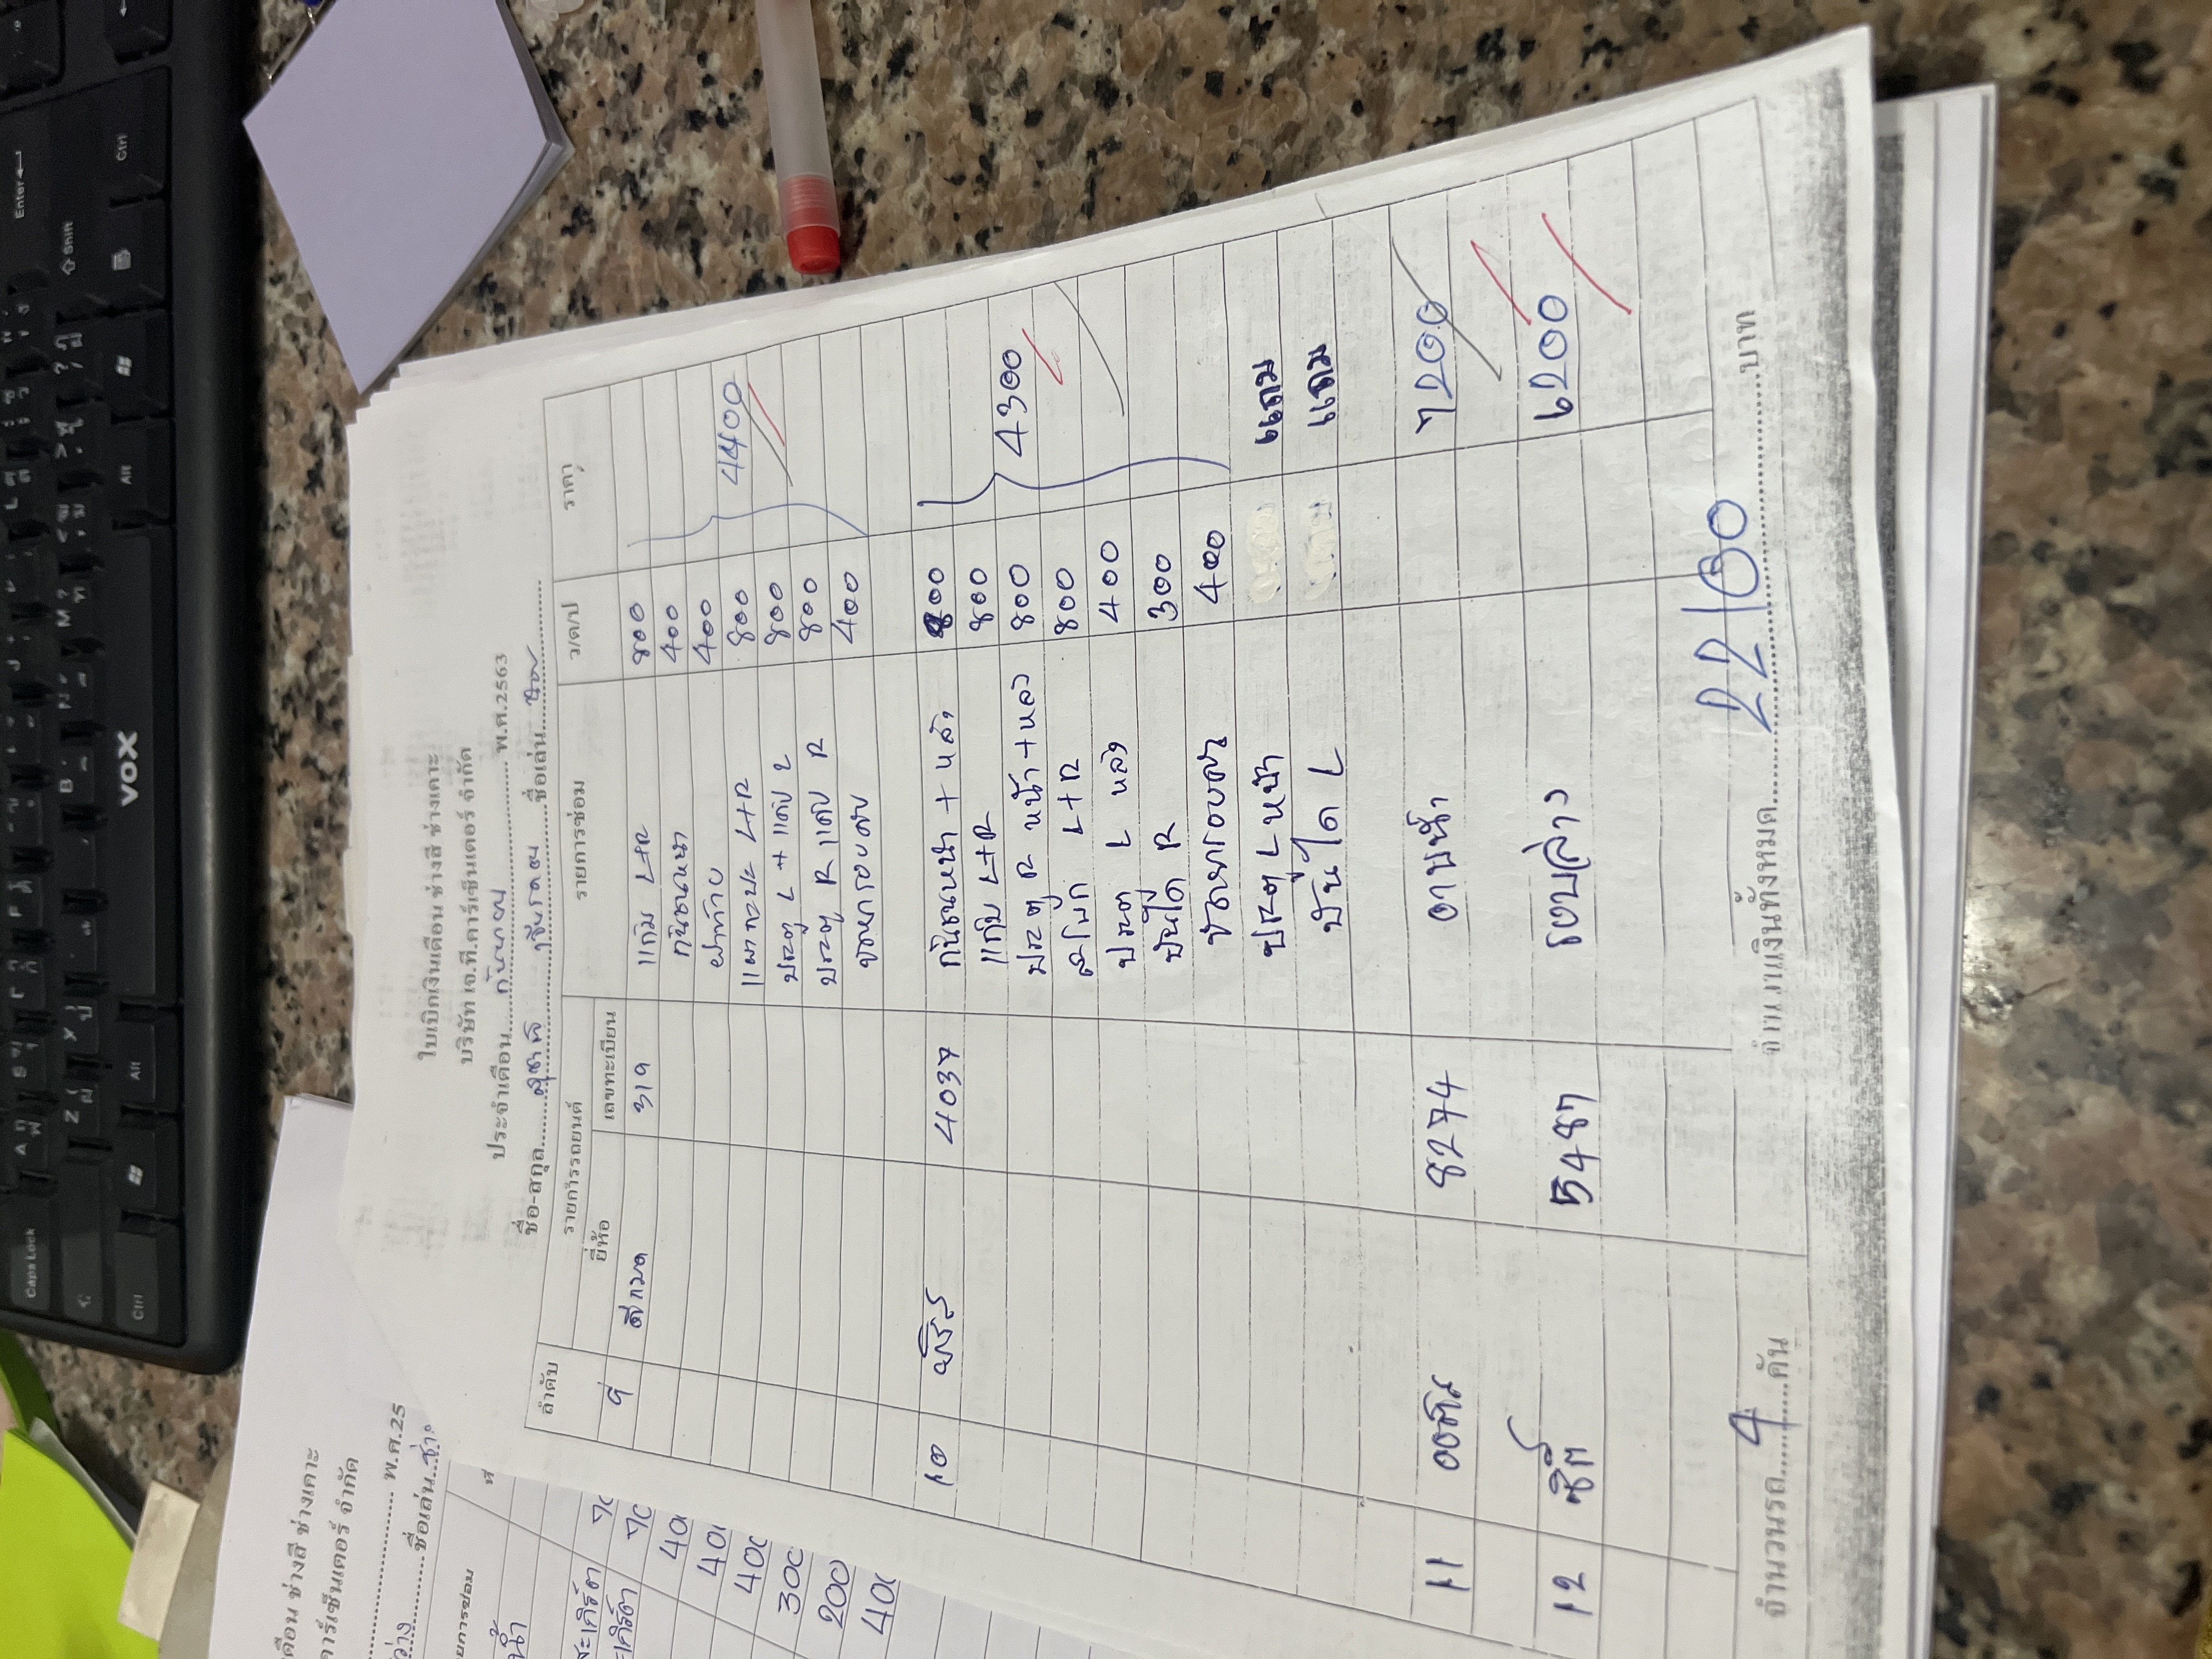 ใบเบิกเงินเดือน ช่างสี ช่างเคาะ
บริษัท เอ.ที.คาร์เซ็นเตอร์ จำกัด
ประจำเดือน กันยายน พ.ศ.2563
ชื่อ-สกุล สุชาติ ชื่อเล่น
ลำดับ รายการรถยนต์ รายการซ่อม ว/ด/ป ราคา
ยี่ห้อ เลขทะเบียน
9 319 แก้ม L+R 800
กันชนหน้า 400
ฝาท้าย 400
L+R 800
ประตู L + แค็บ L 800 4400
ประตู R แค็บ R 800
400
10 4037 กันชนหน้า + หลัง 800
แก้ม L+R 800
ประตู R หน้า + หลัง 800
สะโพก L+R 800 4300
ประตู L หลัง 400
บันได R 300
400
ประตู L หน้า แถม
บันได L แถม
11 8274 อาบน้ำ 7200
12 5487 รอบล่าง 6200
จำนวนรถ 4 คัน จำนวนเงินทั้งหมด 22100 บาท
เดือน ช่างสี ช่างเคาะ
คาร์เซ็นเตอร์ จำกัด
พ.ศ.25
ชื่อเล่น
ยการซ่อม
400
300
200
VOX
Enter
Shift
Ctrl
Alt
Alt
Caps Lock
Ctrl